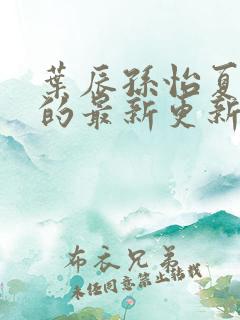 葉辰孫怡夏
的最新更新
布衣兄弟
未经同意禁止转载